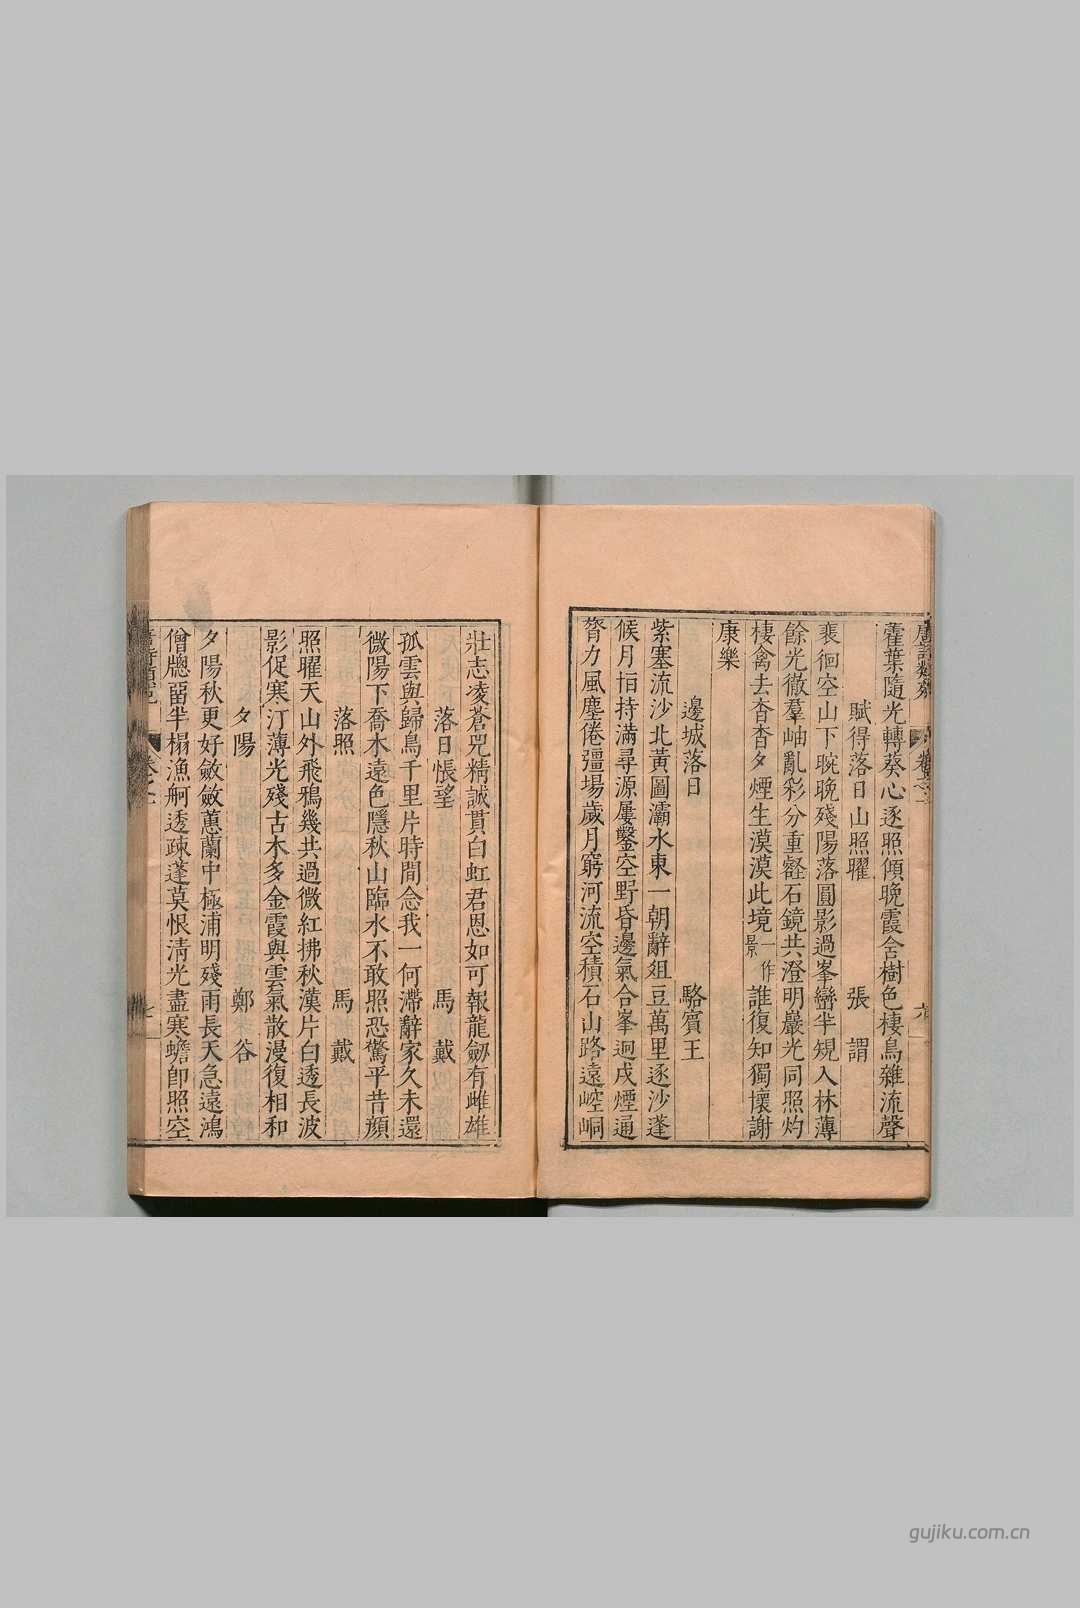 藿葉隨光轉葵心逐照傾晚霞舍樹色棲鳥雜流聲
賦得落日山照曜 張謂
裵徊空山下晼晚殘陽落圓影過峯巒半規入林薄
餘光徹羣岫亂彩分重壑石鏡共澄明巖光同照灼
棲禽去杳杳夕煙生漠漠此境一作景誰復知獨懷謝
康樂
邊城落日 駱賓王
紫塞流沙北黃圖灞水東一朝辭俎豆萬里逐沙蓬
候月恒持滿尋源屢鑿空野昏邊氣合峯迥戍煙通
膂力風塵倦疆場歲月窮河流空積石山路遠崆峒
壯志凌蒼兕精誠貫白虹君恩如可報龍劒有雌雄
落日悵望 馬戴
孤雲與歸鳥千里片時間念我一何滯辭家久未還
微陽下喬木遠色隱秋山臨水不敢照恐驚平昔顏
落照 馬戴
照曜天山外飛鴉幾共過微紅拂秋漢片白透長波
影促寒汀薄光殘古木多金霞與雲氣散漫復相和
夕陽 鄭谷
夕陽秋更好斂斂蕙蘭中極浦明殘雨長天急遠鴻
僧牕留半榻漁舸透疎蓬莫恨淸光盡寒蟾卽照空
gujiku.com.cn